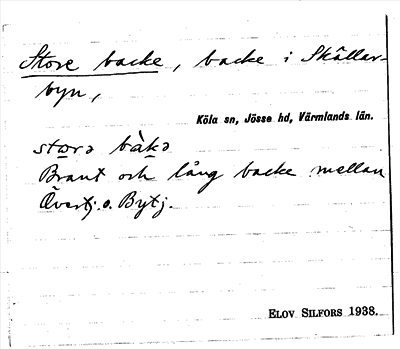 Store backe, backe i Skållar-
byn,
Köla sn, Jösse hd, Värmlands län.
stora bàka
Brant och lång backe mellan
Övertj. o. Bytj.
ELOV SILFORS 1938.